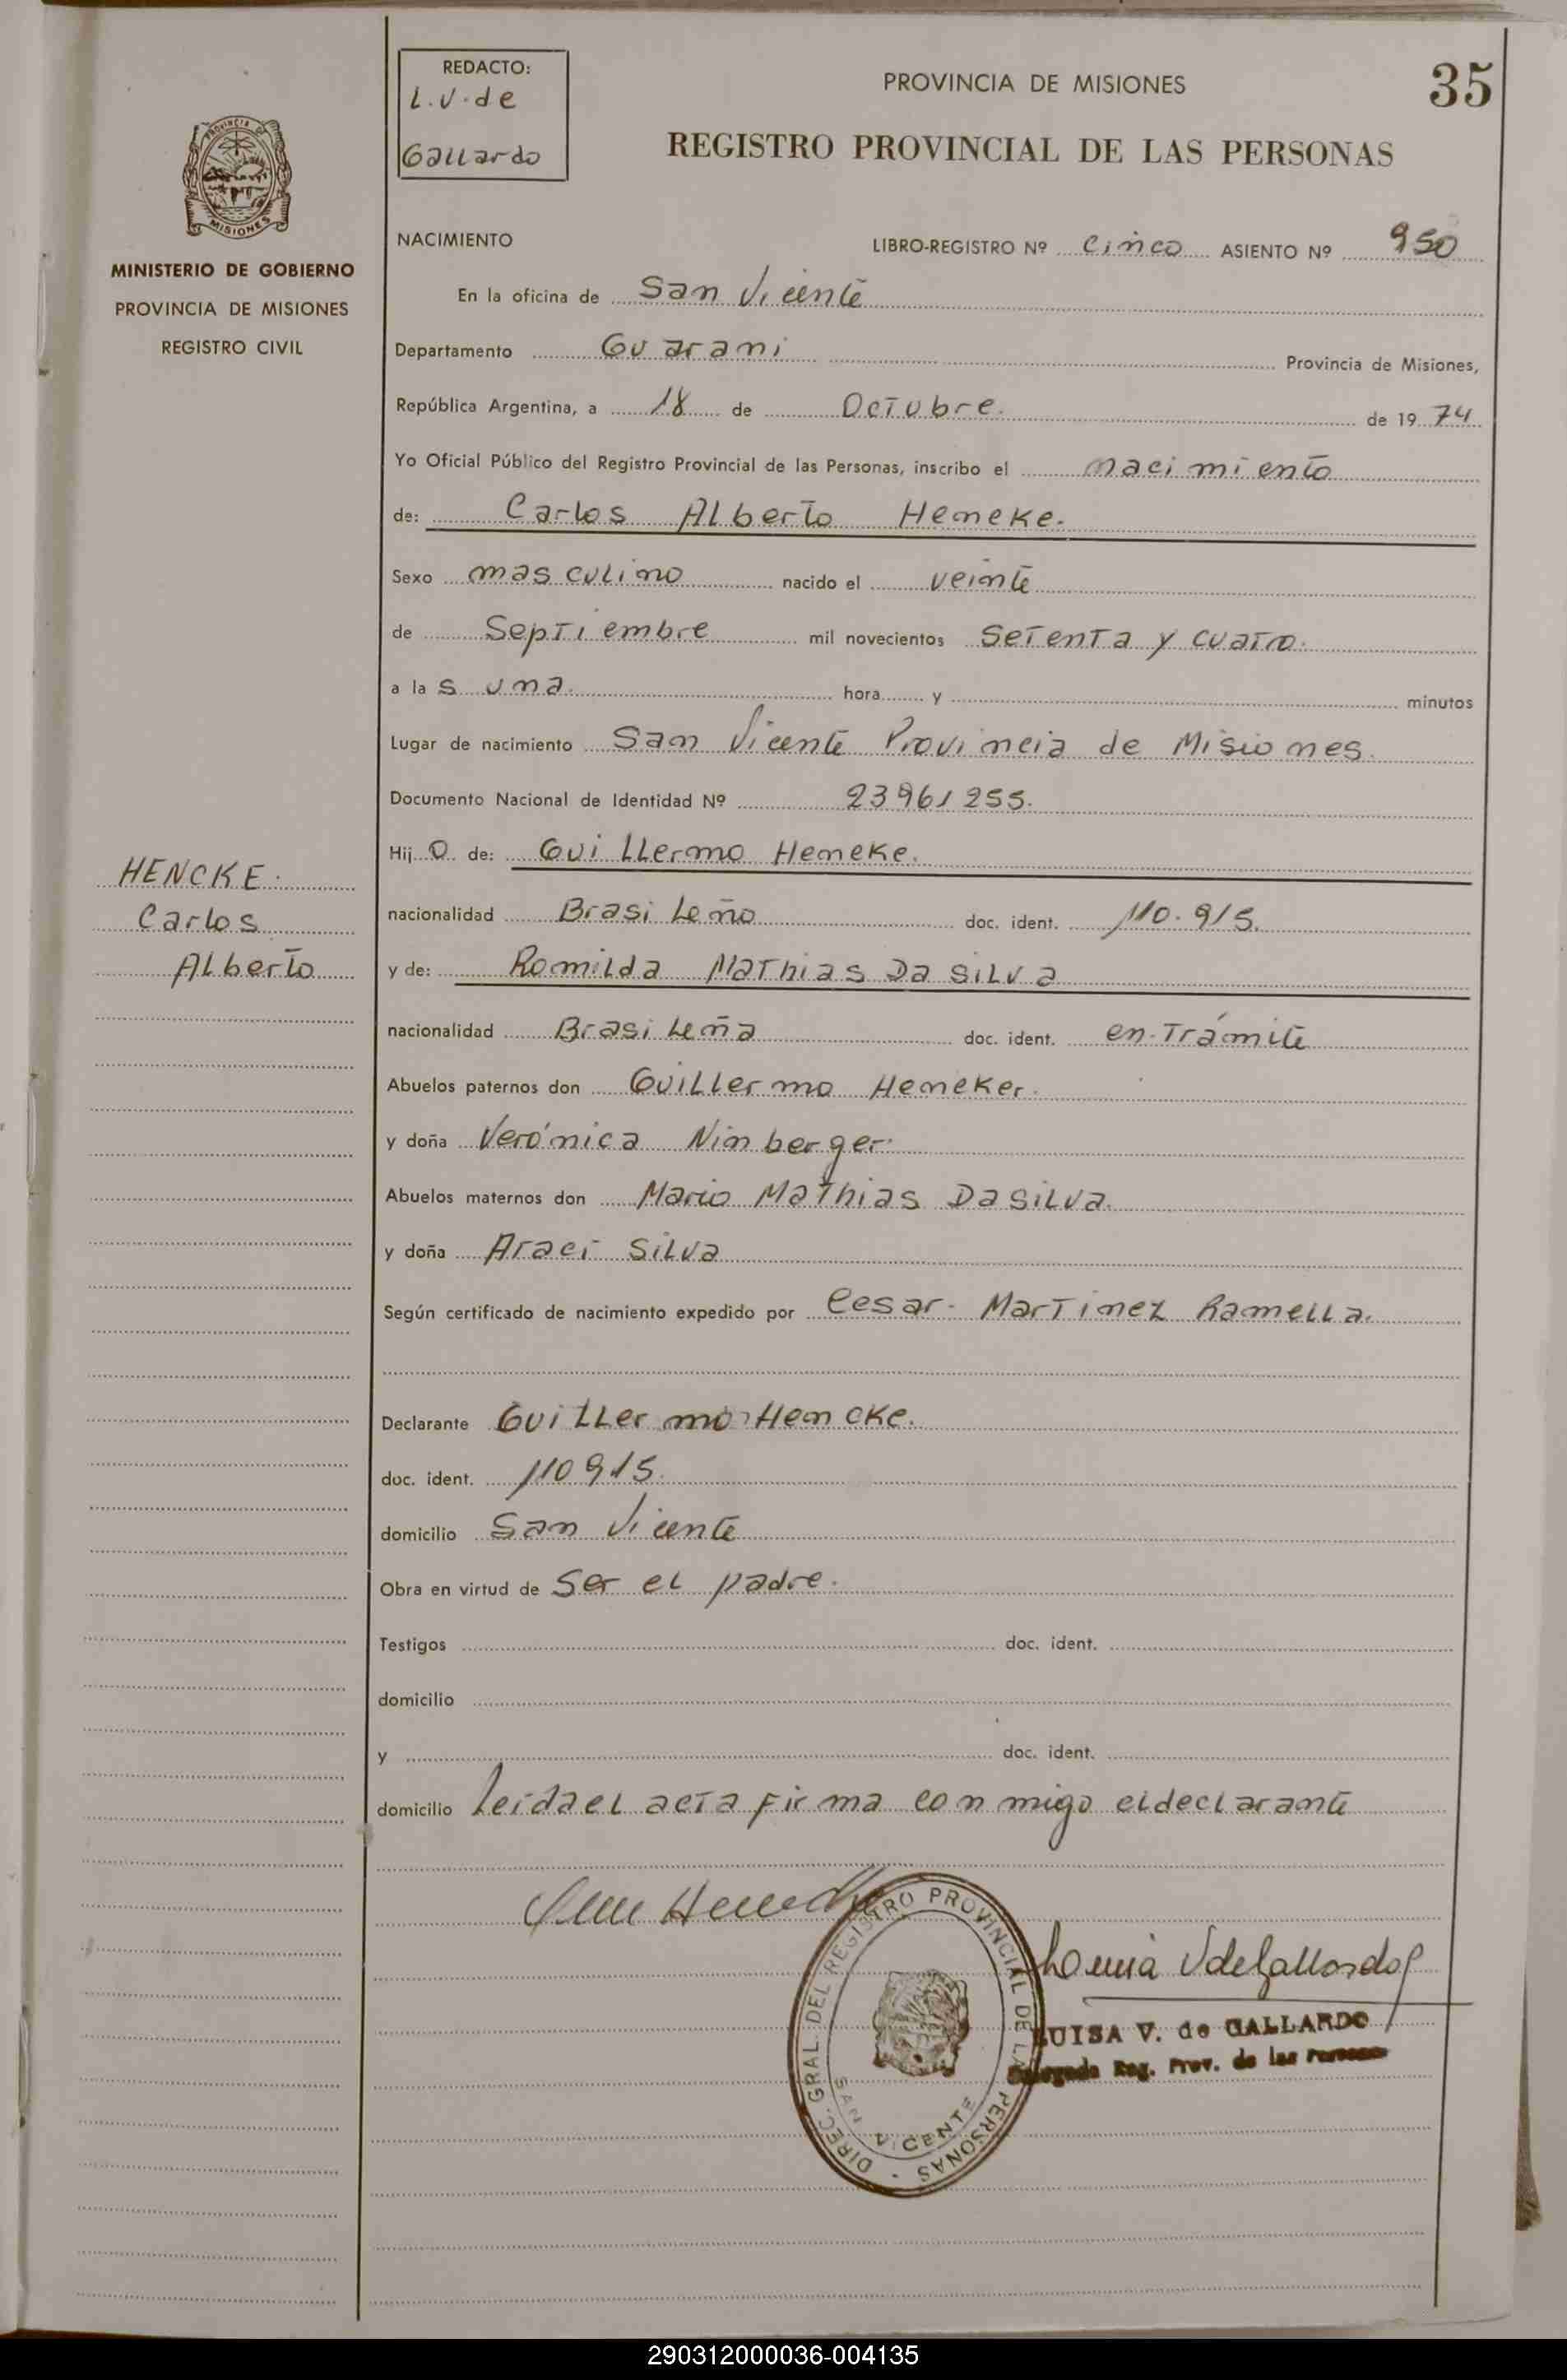 35
REDACTO:
L.V. de
Gallardo
PROVINCIA DE MISIONES
REGISTRO PROVINCIAL DE LAS PERSONAS
PROVINCIA DE
MISIONES
MINISTERIO DE GOBIERNO
PROVINCIA DE MISIONES
REGISTRO CIVIL
NACIMIENTO LIBRO-REGISTRO Nº Cinco ASIENTO Nº 950
En la oficina de San Vicente
Departamento Guarani Provincia de Misiones,
República Argentina, a 18 de Octubre. de 1974
Yo Oficial Público del Registro Provincial de las Personas, inscribo el nacimiento
de: Carlos Alberto Hencke.
Sexo masculino nacido el veinte
de Septiembre mil novecientos Setenta y cuatro.
a las una. hora y minutos
Lugar de nacimiento San Vicente Provincia de Misiones.
Documento Nacional de Identidad Nº 23961255.
Hijo de: Guillermo Hencke.
nacionalidad Brasileño doc. ident. 110.915.
y de: Romilda Mathias Da Silva
nacionalidad Brasileña doc. ident. en Trámite
Abuelos paternos don Guillermo Hencker.
y doña Verónica Nimberger.
Abuelos maternos don Mario Mathias Da Silva.
y doña Araci Silva
Según certificado de nacimiento expedido por Cesar Martinez Ramella.
Declarante Guillermo Hencke.
doc. ident. 110915.
domicilio San Vicente
Obra en virtud de Ser el padre.
Testigos doc. ident.
domicilio
y doc. ident.
domicilio Leida el acta firma conmigo el declarante
HENCKE.
Carlos
Alberto
DIREC. GRAL. DEL REGISTRO PROVINCIAL DE LAS PERSONAS
SAN VICENTE
LUISA V. de GALLARDO
Delegada Reg. Prov. de las Personas
290312000036-004135